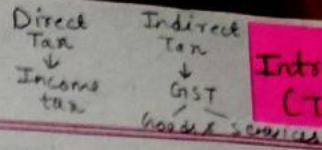 Direct
Tax
↓
Income
tax
Indirect
Tax
↓
GST
Goods & services
Intro
(T